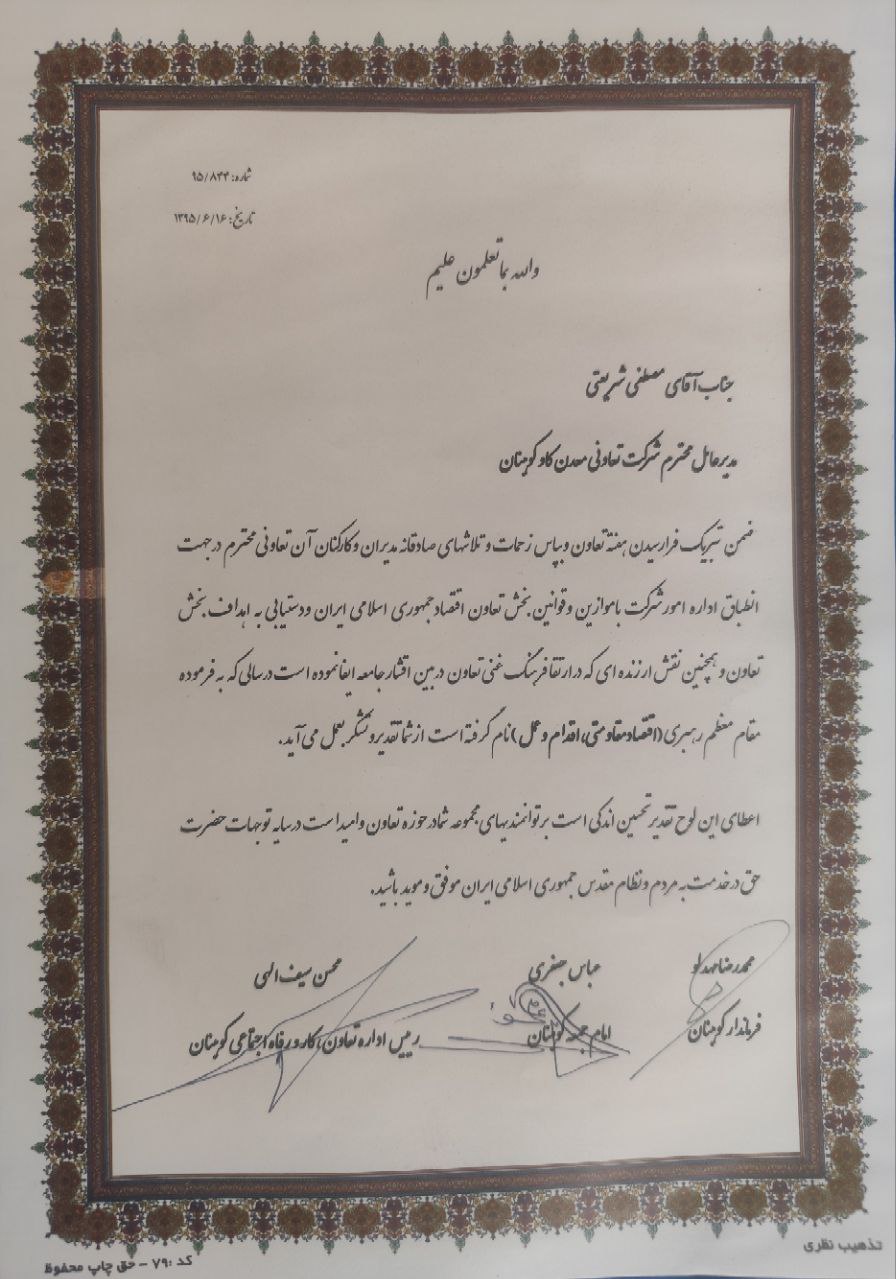 شماره: ۹۵/۸۴۴
تاریخ: ۱۳۹۵/۶/۱۶
والله بما تعلمون علیم
جناب آقای مصطفی شریعتی
مدیرعامل محترم شرکت تعاونی معدن کاو کوهبنان
ضمن تبریک فرارسیدن هفته تعاون و بپاس زحمات و تلاشهای صادقانه مدیران و کارکنان آن تعاونی محترم در جهت
انطباق اداره امور شرکت با موازین و قوانین بخش تعاون اقتصاد جمهوری اسلامی ایران و دستیابی به اهداف بخش
تعاون و همچنین نقش ارزنده ای که در ارتقا فرهنگ غنی تعاون در بین اقشار جامعه ایفا نموده است در سالی که به فرموده
مقام معظم رهبری (اقتصاد مقاومتی، اقدام و عمل) نام گرفته است از شما تقدیر و تشکر بعمل می آید.
اعطای این لوح تقدیر تحسین اندکی است بر توانمندیهای مجموعه شما در حوزه تعاون و امید است در سایه توجهات حضرت
حق در خدمت به مردم و نظام مقدس جمهوری اسلامی ایران موفق و موید باشید.
محمدرضا مهدلو عباس جعفری محسن سیف الهی
فرماندار کوهبنان امام جمعه کوهبنان رییس اداره تعاون، کار و رفاه اجتماعی کوهبنان
تذهیب نظری
کد :۷۹ – حق چاپ محفوظ